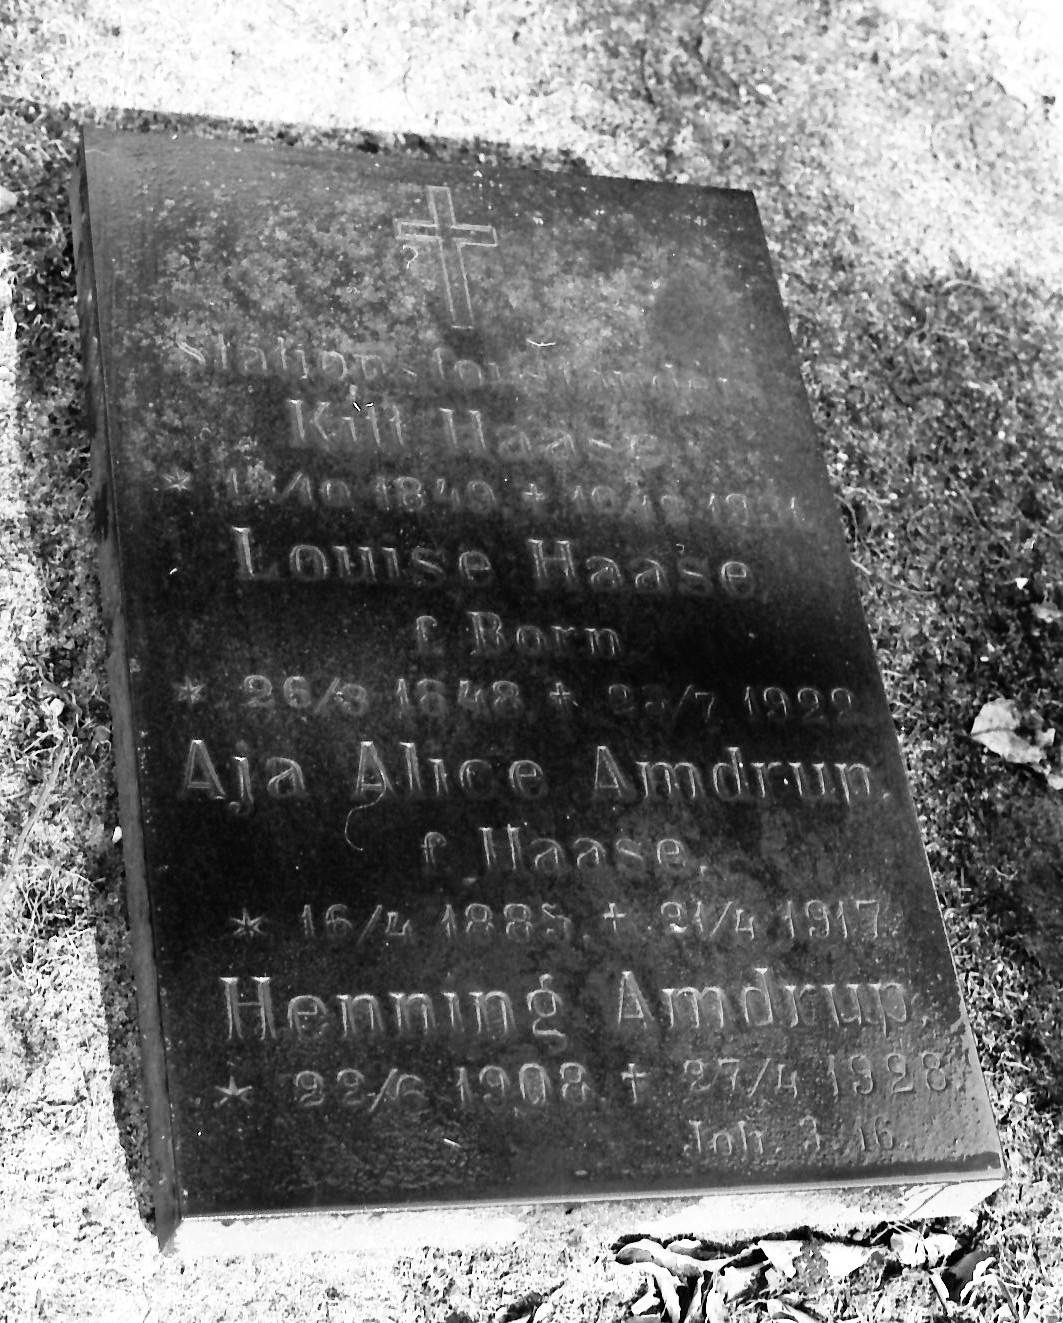 Stationsforstander
Kitt Haase
* 18/10 1849 †
Louise Haase,
f. Born
* 26/8 1848 † 7 1922
Aja Alice Amdrup,
f. Haase,
* 16/4 1885, † 21/4 1917,
Henning Amdrup,
* 22/6 1908 † 27/4 1928
Joh. 3. 16.